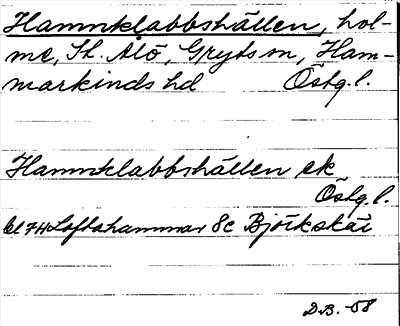 Hamnklabbshällen, hol-
me, St. Alö, Gryts sn, Ham-
markinds hd Östg.l.
Hamnklabbshällen ek
Östg.l.
bl 7H Loftahammar 8c Björkskär
D.B. -58